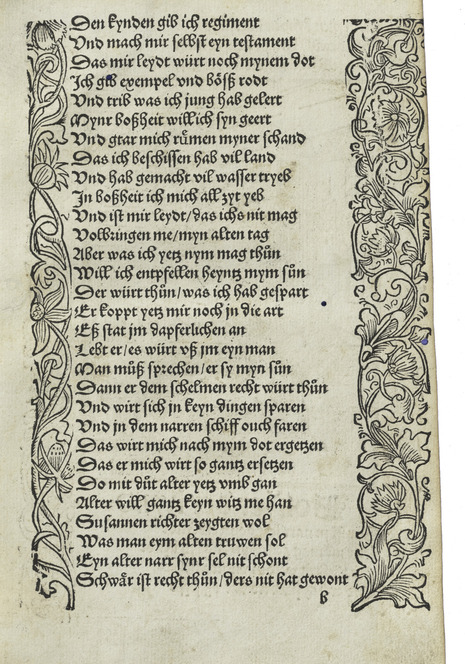 Den kynden gib ich regiment
Vnd mach mir selbst eyn testament
Das mir leydt würt noch mynem dot
Jch gib exempel vnd bo̊ß rodt
Vnd trib was ich jung hab gelert
Mynr boßheit will ich syn geert
Vnd gtar mich ru̇men myner schand
Das ich beschissen hab vil land
Vnd hab gemacht vil wasser tryeb
Jn boßheit ich mich all zyt yeb
Vnd ist mir leydt/das ichs nit mag
Volbringen me/myn alten tag
Aber was ich yetz nym mag thůn
Will ich entpfellen heyntz mym sůn
Der würt thůn/was ich hab gespart
Er koppt yetz mir noch jn die art
Eß stat jm dapferlichen an
Lebt er/es würt vß jm eyn man
Man můß sprechen/er sy myn sůn
Dann er dem schelmen recht würt thůn
Vnd wirt sich jn keyn dingen sparen
Vnd jn dem narren schiff ouch faren
Das wirt mich nach mym dot ergetzen
Das er mich wirt so gantz ersetzen
Do mit důt alter yetz vmb gan
Alter will gantz keyn witz me han
Susannen richter zeygten wol
Was man eym alten truwen sol
Eyn alter narr synr sel nit schont
Schwår ist recht thůn/ders nit hat gewont
B